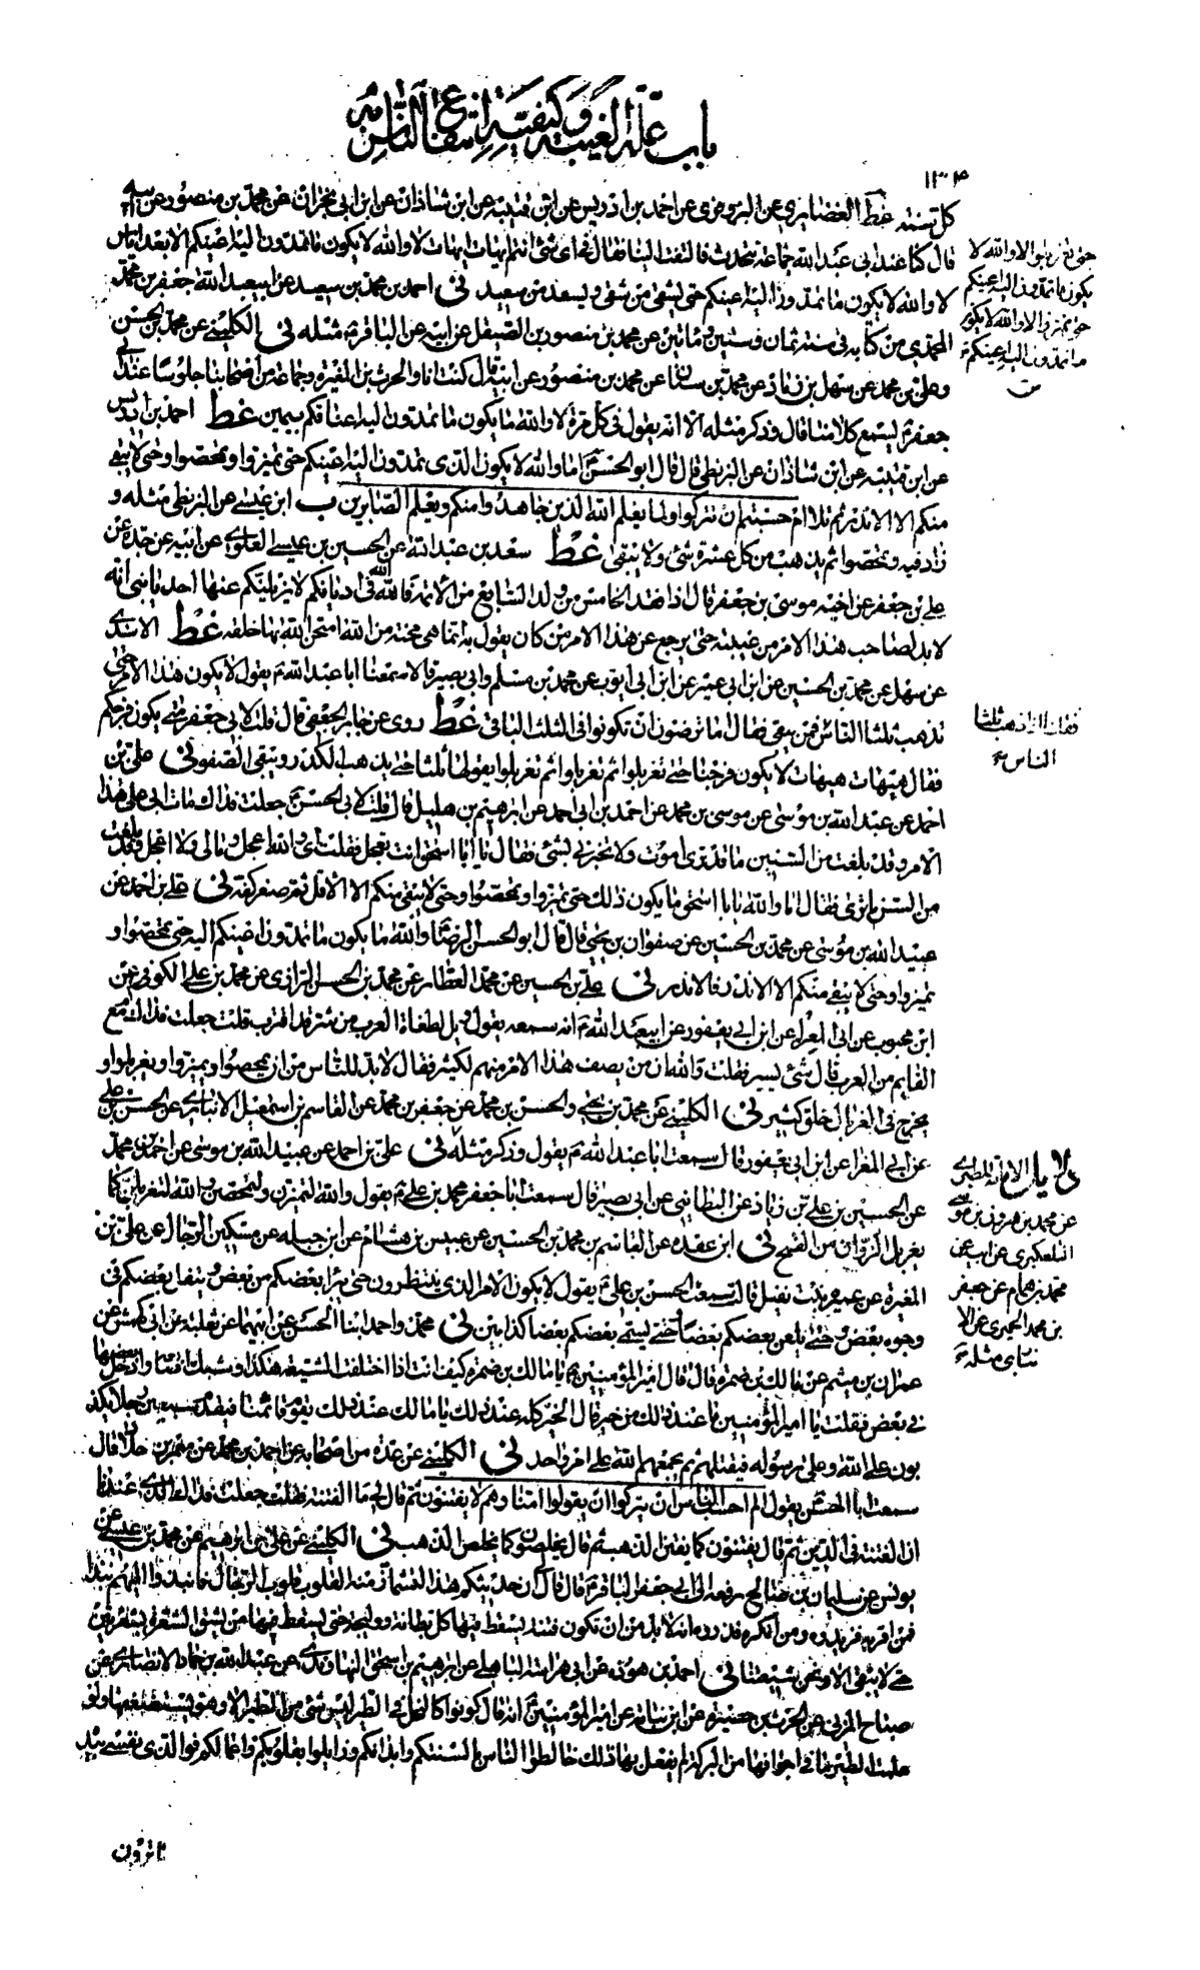 باب علة الغيبة وكيفية انتفاع الناس به
١٣۴
كل سنة غط الغضايري عن البزوفري عن احمد بن ادريس عن ابن قتيبة عن ابن شاذان عن ابن ابي نجران عن محمد بن منصور عن ابيه
قال كنا عند ابي عبد الله جماعة نتحدث فالتفت الينا فقال في اي شئ انتم ايهات ايهات لا والله لا يكون ما تمدون اليه اعينكم الا بعد اياس
لا والله لا يكون ما تمدون اليه اعينكم حتى يشقى من شقى ويسعد من سعيد نى احمد بن محمد بن سعيد عن ابي عبد الله جعفر بن محمد
المحمدي من كتابه في سنة ثمان وستين ومأتين عن محمد بن منصور بن الصيقل عن ابيه عن الباقر ع مثله نى الكليني عن محمد بن الحسن
وعلي بن محمد عن سهل بن زياد عن محمد بن سنان عن محمد بن منصور عن ابيه قال كنت انا والحرث بن المغيرة وجماعة من اصحابنا جلوسا عند ابي
جعفر ع يسمع كلامنا قال وذكر مثله الا انه يقول في كل مرة لا والله ما يكون ما تمدون اليه اعناقكم بيمين غط احمد بن ادريس
عن ابن قتيبة عن ابن شاذان عن البزنطي قال قال ابو الحسن ع اما والله لا يكون الذي تمدون اليه اعينكم حتى تميزوا وتمحصوا وحتى لا يبقى
منكم الا الاندر ثم تلا ام حسبتم ان تتركوا ولما يعلم الله الذين جاهدوا منكم ويعلم الصابرين ب ابن عيسى عن البزنطي مثله و
زاد فيه وتمحصوا ثم يذهب من كل عشرة شئ ولا يبقى غط سعد بن عبد الله عن الحسين بن عيسى العلوي عن ابيه عن جده عن
علي بن جعفر عن اخيه موسى بن جعفر قال اذا فقد الخامس من ولد السابع من الائمة فالله الله في اديانكم لا يزيلنكم عنها احد يا بني انه
لا بد لصاحب هذا الامر من غيبة حتى يرجع عن هذا الامر من كان يقول به انما هي محنة من الله امتحن الله بها خلقه غط الاسدي
عن سهل عن محمد بن الحسين عن ابن ابي عمير عن ابن ابي ايوب عن محمد بن مسلم وابي بصير قالا سمعنا ابا عبد الله ع يقول لا يكون هذا الامر حتى
تذهب ثلثا الناس فمن يبقى فقال اما ترضون ان تكونوا في الثلث الباقي غط روى عن جابر الجعفي قال قلت لابي جعفر متى يكون فرجكم
فقال هيهات هيهات لا يكون فرجنا حتى تغربلوا ثم تغربلوا ثم تغربلوا يقولها ثلثا حتى يذهب الكدر ويبقى الصفو نى علي بن
احمد عن عبد الله بن موسى عن موسى بن محمد عن احمد بن ابي احمد عن ابرهيم بن هليل قال قلت لابي الحسن ع جعلت فداك مات ابي على هذا
الامر وقد بلغت من السنين ما قد ترى اموت ولا تخبرني بشئ فقال يا ابا اسحق انت تعجل فقلت اي والله اعجل ومالي لا اعجل وقد بلغت
من السن ما ترى فقال اما والله يا با اسحق ما يكون ذلك حتى تميزوا وتمحصوا وحتى لا يبقى منكم الا الاقل ثم صعر كفه نى علي بن احمد عن
عبيد الله بن موسى عن محمد بن الحسين عن صفوان بن يحيى قال قال ابو الحسن الرضا ع والله ما يكون ما تمدون اعينكم اليه حتى تمحصوا و
تميزوا وحتى لا يبقى منكم الا الاندر فالاندر نى علي بن الحسين عن محمد العطار عن محمد بن الحسن الرازي عن محمد بن علي الكوفي عن
ابن محبوب عن ابي المغرا عن ابن ابي يعفور عن ابي عبد الله ع انه سمعه يقول ويل لطغاة العرب من شر قد اقترب قلت جعلت فداك كم مع
القايم من العرب قال شئ يسير فقلت والله ان من يصف هذا الامر منهم لكثير فقال لا بد للناس من ان يمحصوا ويميزوا ويغربلوا و
يخرج في الغربال خلق كثير نى الكليني عن محمد بن يحيى والحسن بن محمد عن جعفر بن محمد عن القاسم بن اسمعيل الانباري عن الحسن بن علي
عن ابي المغرا عن ابن ابي يعفور قال سمعت ابا عبد الله ع يقول وذكر مثله نى علي بن احمد عن عبيد الله بن موسى عن احمد بن محمد
عن الحسين بن علي بن زياد عن البطائني عن ابي بصير قال سمعت ابا جعفر محمد بن علي ع يقول والله لتميزن والله لتمحصن والله لتغربلن كما
يغربل الزوان من القمح نى ابن عقدة عن القاسم بن محمد بن الحسين عن عبيس بن هشام عن ابن جبلة عن مسكين الرحال عن علي بن
المغيرة عن عميرة بنت نفيل قالت سمعت الحسن بن علي ع يقول لا يكون الامر الذي ينتظرون حتى يبرأ بعضكم من بعض ويتفل بعضكم في
وجوه بعض وحتى يلعن بعضكم بعضا وحتى يسمى بعضكم بعضا كذابين نى محمد واحمد ابنا الحسن عن ابيهما عن ثعلبة عن ابي كهمش عن
عمران بن ميثم عن مالك بن ضمرة قال قال امير المؤمنين ع يا مالك بن ضمرة كيف انت اذا اختلفت الشيعة هكذا وشبك اصابعه وادخل بعضها
في بعض فقلت يا امير المؤمنين ما عند ذلك من خير قال الخير كله عند ذلك يا مالك عند ذلك يقوم قائمنا فيقدم سبعين رجلا يكذ
بون على الله وعلى رسوله فيقتلهم ثم يجمعهم الله على امر واحد نى الكليني عن عدة من اصحابه عن احمد بن محمد عن معمر بن خلاد قال
سمعت ابا الحسن ع يقول الم احسب الناس ان يتركوا ان يقولوا امنا وهم لا يفتنون ثم قال لي ما الفتنة فقلت جعلت فداك الذي عندنا
ان الفتنة في الدين ثم قال يفتنون كما يفتن الذهب ثم قال يخلصون كما يخلص الذهب نى الكليني عن علي بن ابرهيم عن محمد بن عيسى عن
يونس عن سليمان بن صالح رفعه الى ابي جعفر الباقر ع قال قال ان حديثكم هذا لتشمأز منه القلوب قلوب الرجال فانبذوا اليهم نبذا
فمن اقر به فزيدوه ومن انكره فذروه انه لا بد من ان تكون فتنة يسقط فيها كل بطانة ووليجة حتى يسقط فيها من يشق الشعرة بشعرتين
حتى لا يبقى الا ونحن شيعتنا نى احمد بن هوذة عن ابي هراسة الباهلي عن ابرهيم بن اسحق النهاوندي عن عبد الله بن حماد الانصاري عن
صباح المزني عن الحرث بن حصيرة عن ابن نباتة عن امير المؤمنين ع انه قال كونوا كالنحل في الطير ليس شئ من الطير الا وهو يستضعفها ولو
علمت الطير ما في اجوافها من البركة لم يفعل بها ذلك خالطوا الناس بالسنتكم وابدانكم وزايلوا بقلوبكم واعمالكم فوالذي نفسي بيد
ما ترون
حتى تغربلوا لا والله لا
يكون ما تمدون اليه اعينكم
حتى تميزوا لا والله لا يكون
ما تمدون اليه اعينكم
فقلت اذا ذهب ثلثا
الناس
دلايل الامامة للطبري
عن محمد بن هرون بن موسى
التلعكبري عن ابيه عن
محمد بن همام عن جعفر
بن محمد الحميري عن الا
نباري مثله